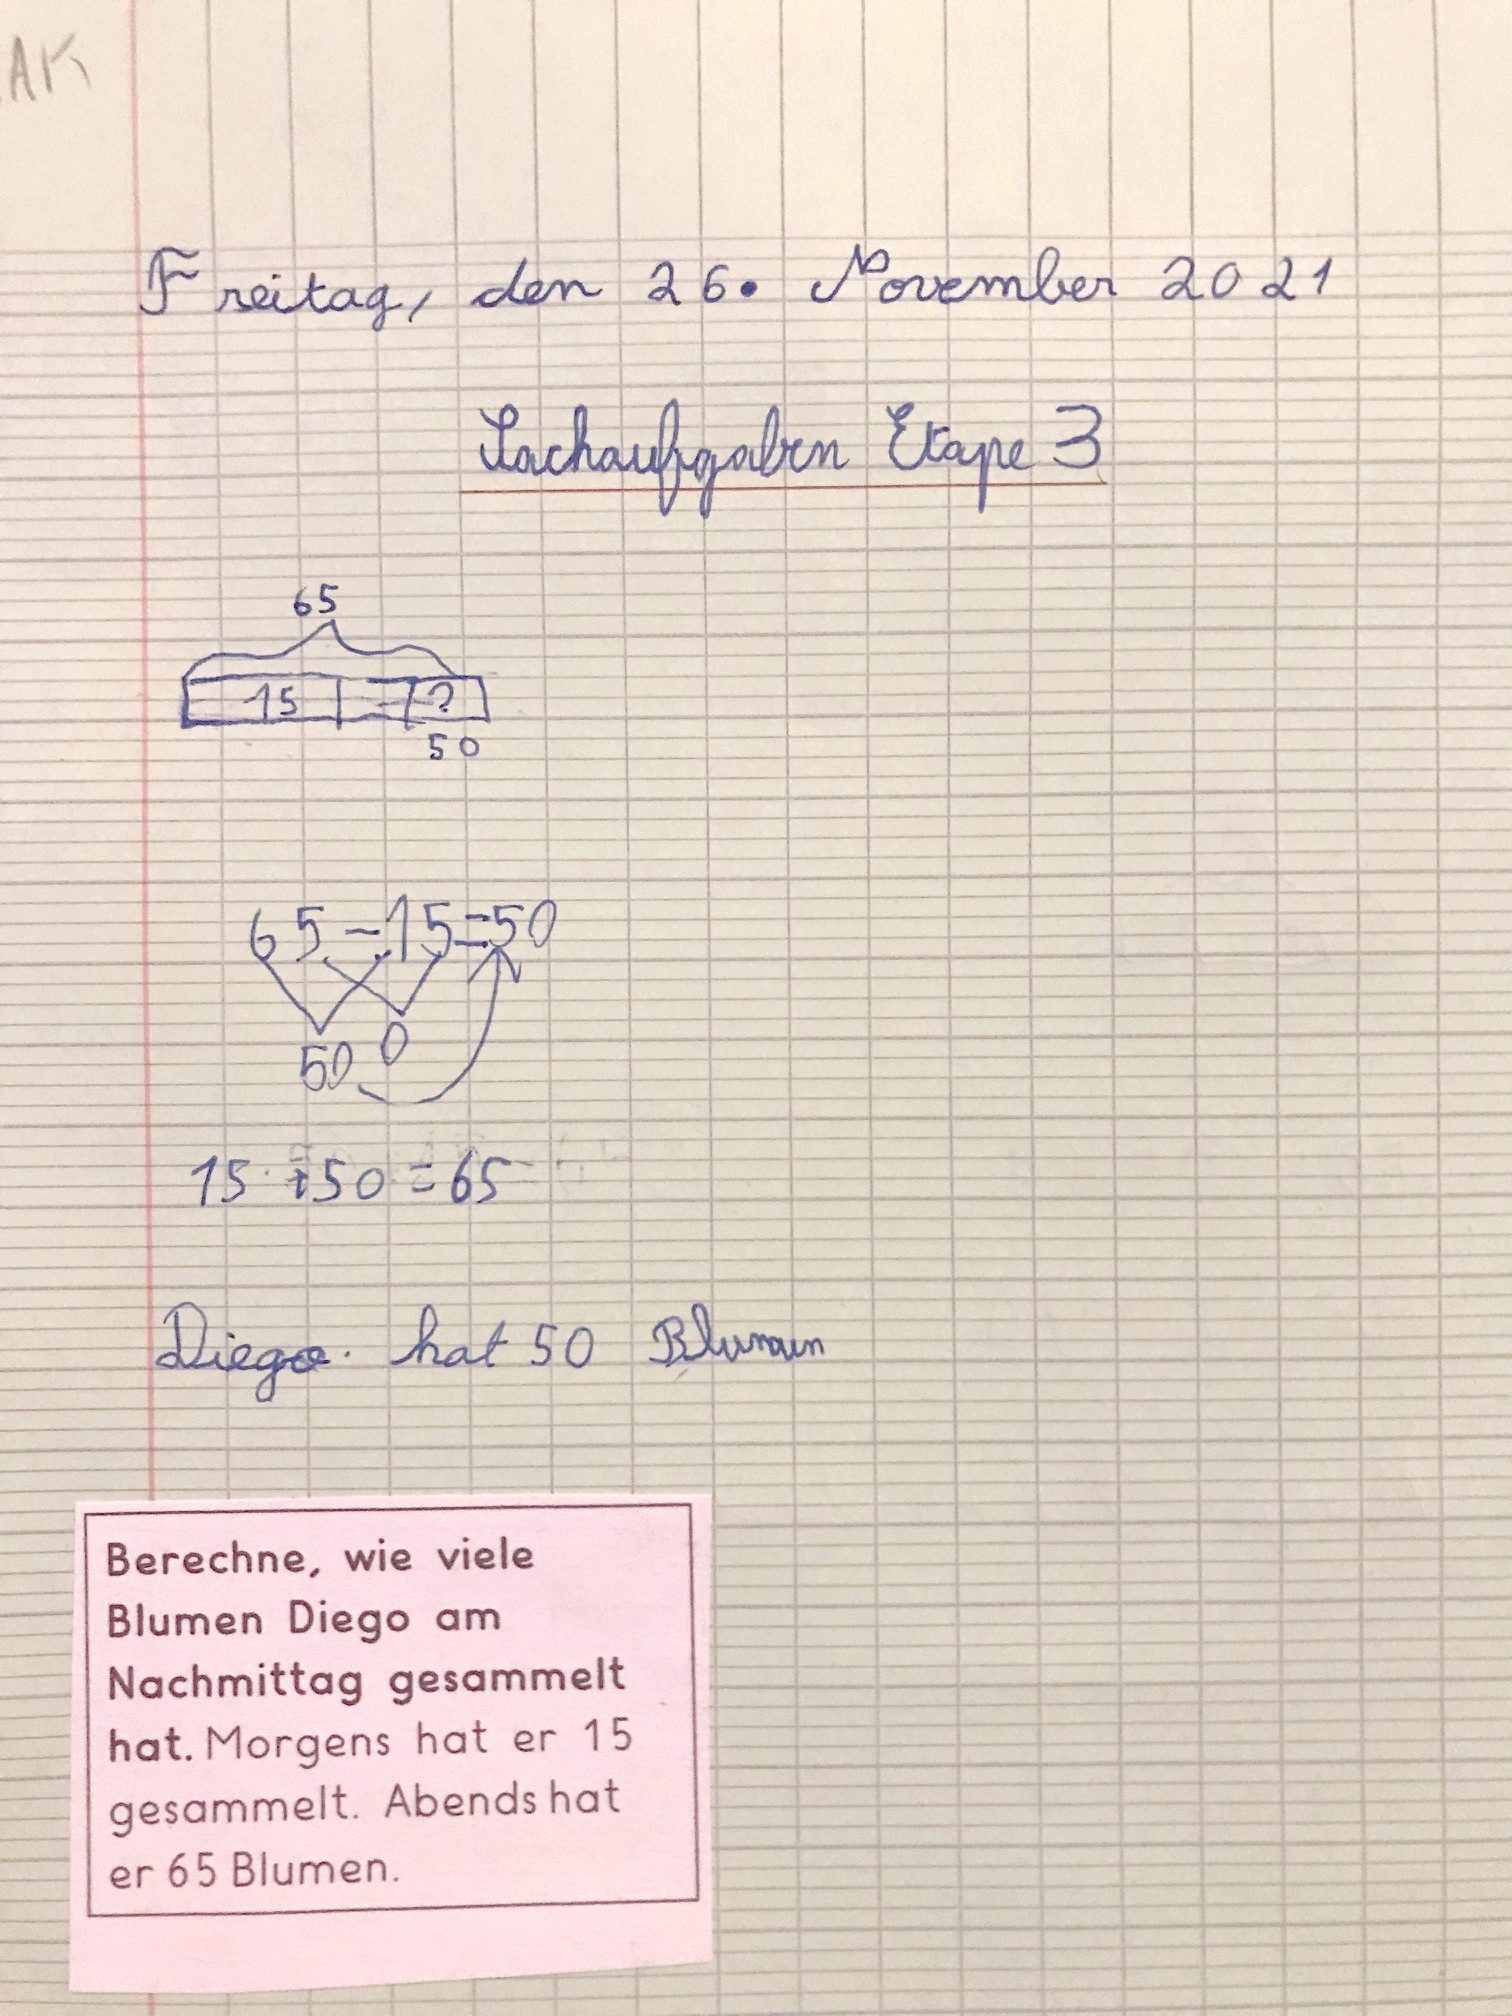 AK
Freitag, den 26. November 2021
Sachaufgaben Etape 3
65
15 ?
50
65 - 15 = 50
50 0
15 + 50 = 65
Diego hat 50 Blumen
Berechne, wie viele
Blumen Diego am
Nachmittag gesammelt
hat. Morgens hat er 15
gesammelt. Abends hat
er 65 Blumen.